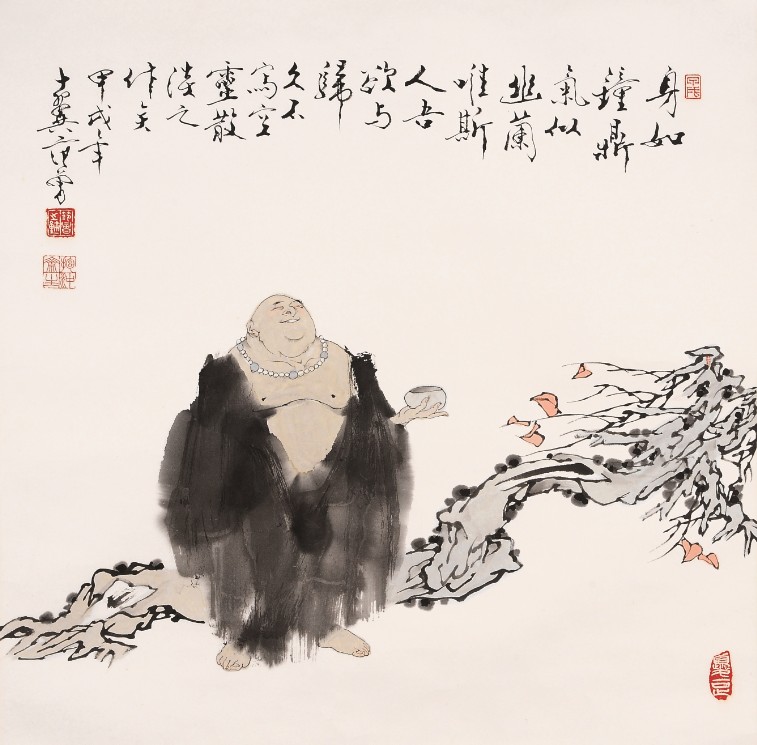 身如
鐘鼎
氣似
幽蘭
唯斯
人吾
欲与
歸
久不
寫空
靈散
淡之
作矣
甲戌年
十翼范曾